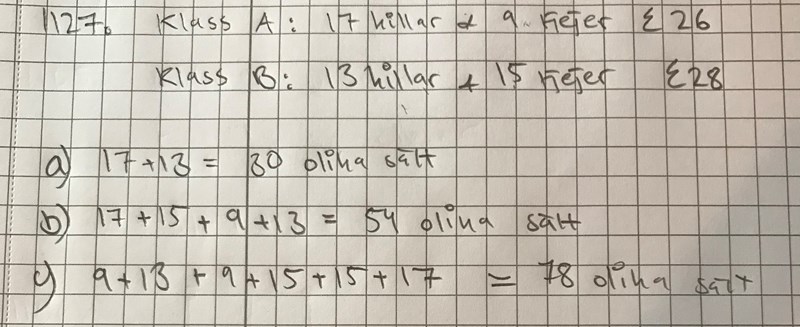 1127. Klass A: 17 killar & 9 tjejer Σ 26
Klass B: 13 killar & 15 tjejer Σ 28
a) 17+13 = 30 olika sätt
b) 17+15+9+13 = 54 olika sätt
c) 9+13+9+15+15+17 = 78 olika sätt